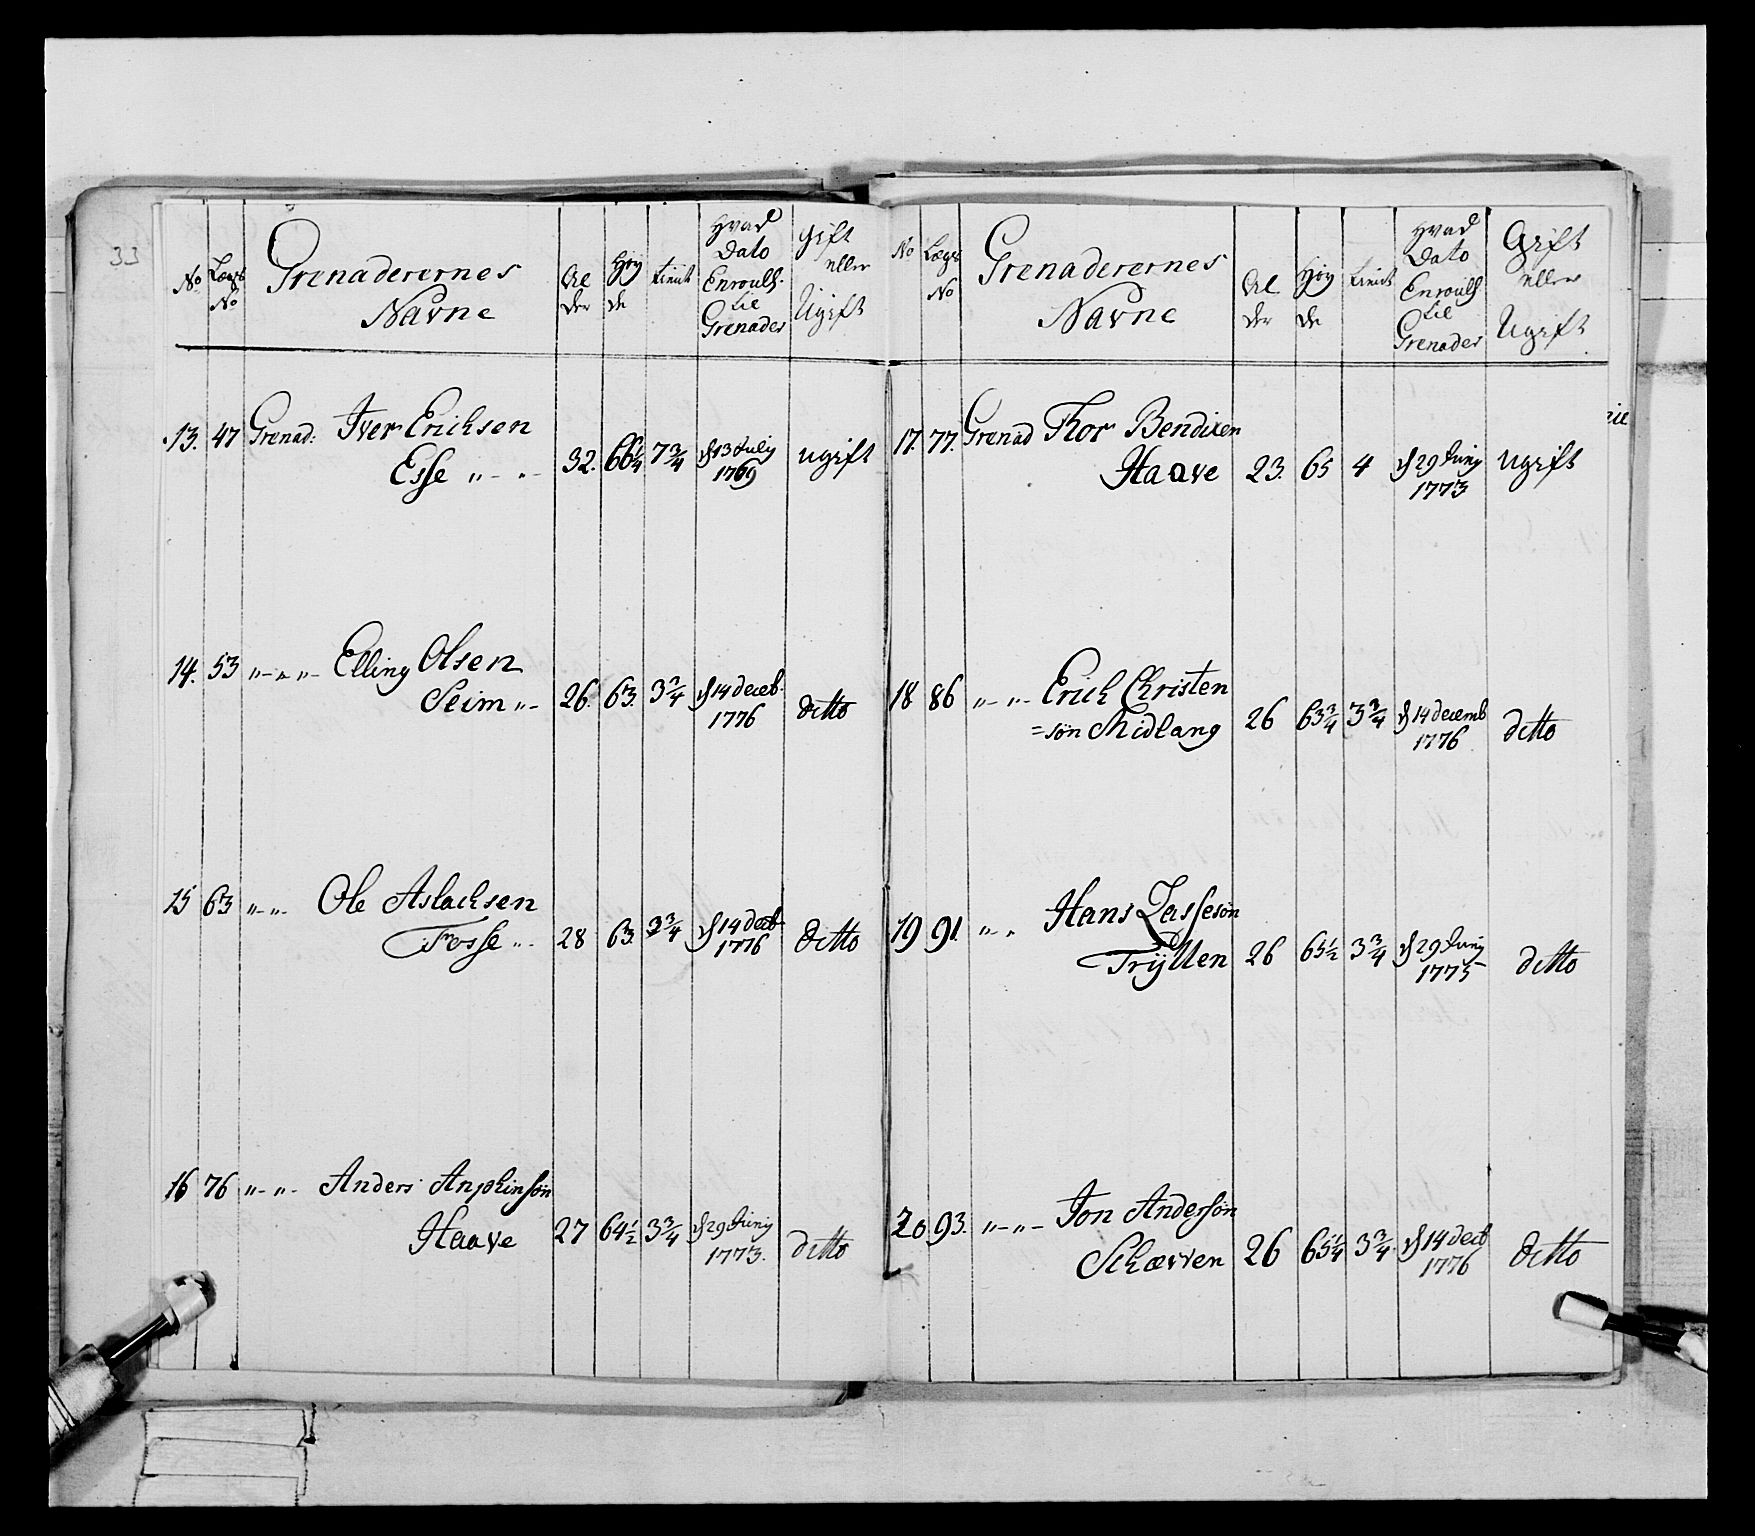 33
No Lægs No Grenaderernes Navne Al der Høy de tienst Hvad Dato Enroull. til Grenader Gift eller Ugift
13. 47 Grenad: Iver Erichsen
Esse „ - „ - 32. 66 1/4 7 3/4 d 13 July 1769 ugift
14. 53 „ - „ „ - Elling Olsen
Seim „ - 26. 63. 3 3/4 d 14 deceb. 1776 ditto
15 63 „ - „ - Ole Aslachsen
Fosse „ - 28 63. 3 3/4 d 14 decb 1776 ditto
16 76 „ - „ - Anders Anphinsøn
Haave 27 64 1/2 3 3/4 d 29 Juny 1773. ditto
No Lægs No Grenaderernes Navne Al der Høy de tienst Hvad Dato Enroull til Grenader Gift eller Ugift
17. 77. Grenad Thor Bendixen
Haave 23. 65 4 d 29 Juny 1773 ugift
18 86 „ - „ - Erich Christen
=søn Midlang 26 63 3/4 3 3/4 d 14 decemb 1776 ditto
19 91. „ - „ Hans Lassesøn
Trÿllen 26 65 1/2 3 3/4 d 29 Juny 1775 ditto
20. 93. „ - „ - Jon Andersøn
Schærven 26 65 1/4 3 3/4. d 14 decb 1776 ditto